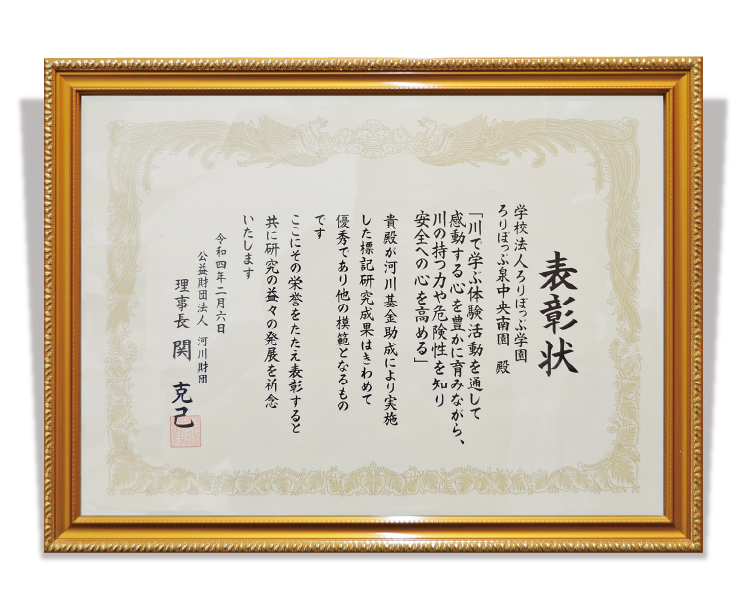 表彰状
学校法人ろりぽっぷ学園
ろりぽっぷ泉中央南園 殿
「川で学ぶ体験活動を通して
感動する心を豊かに育みながら、
川の持つ力や危険性を知り
安全への心を高める」
貴殿が河川基金助成により実施
した標記研究成果はきわめて
優秀であり他の模範となるもの
です
ここにその栄誉をたたえ表彰すると
共に研究の益々の発展を祈念
いたします
令和四年二月六日
公益財団法人 河川財団
理事長 関 克己